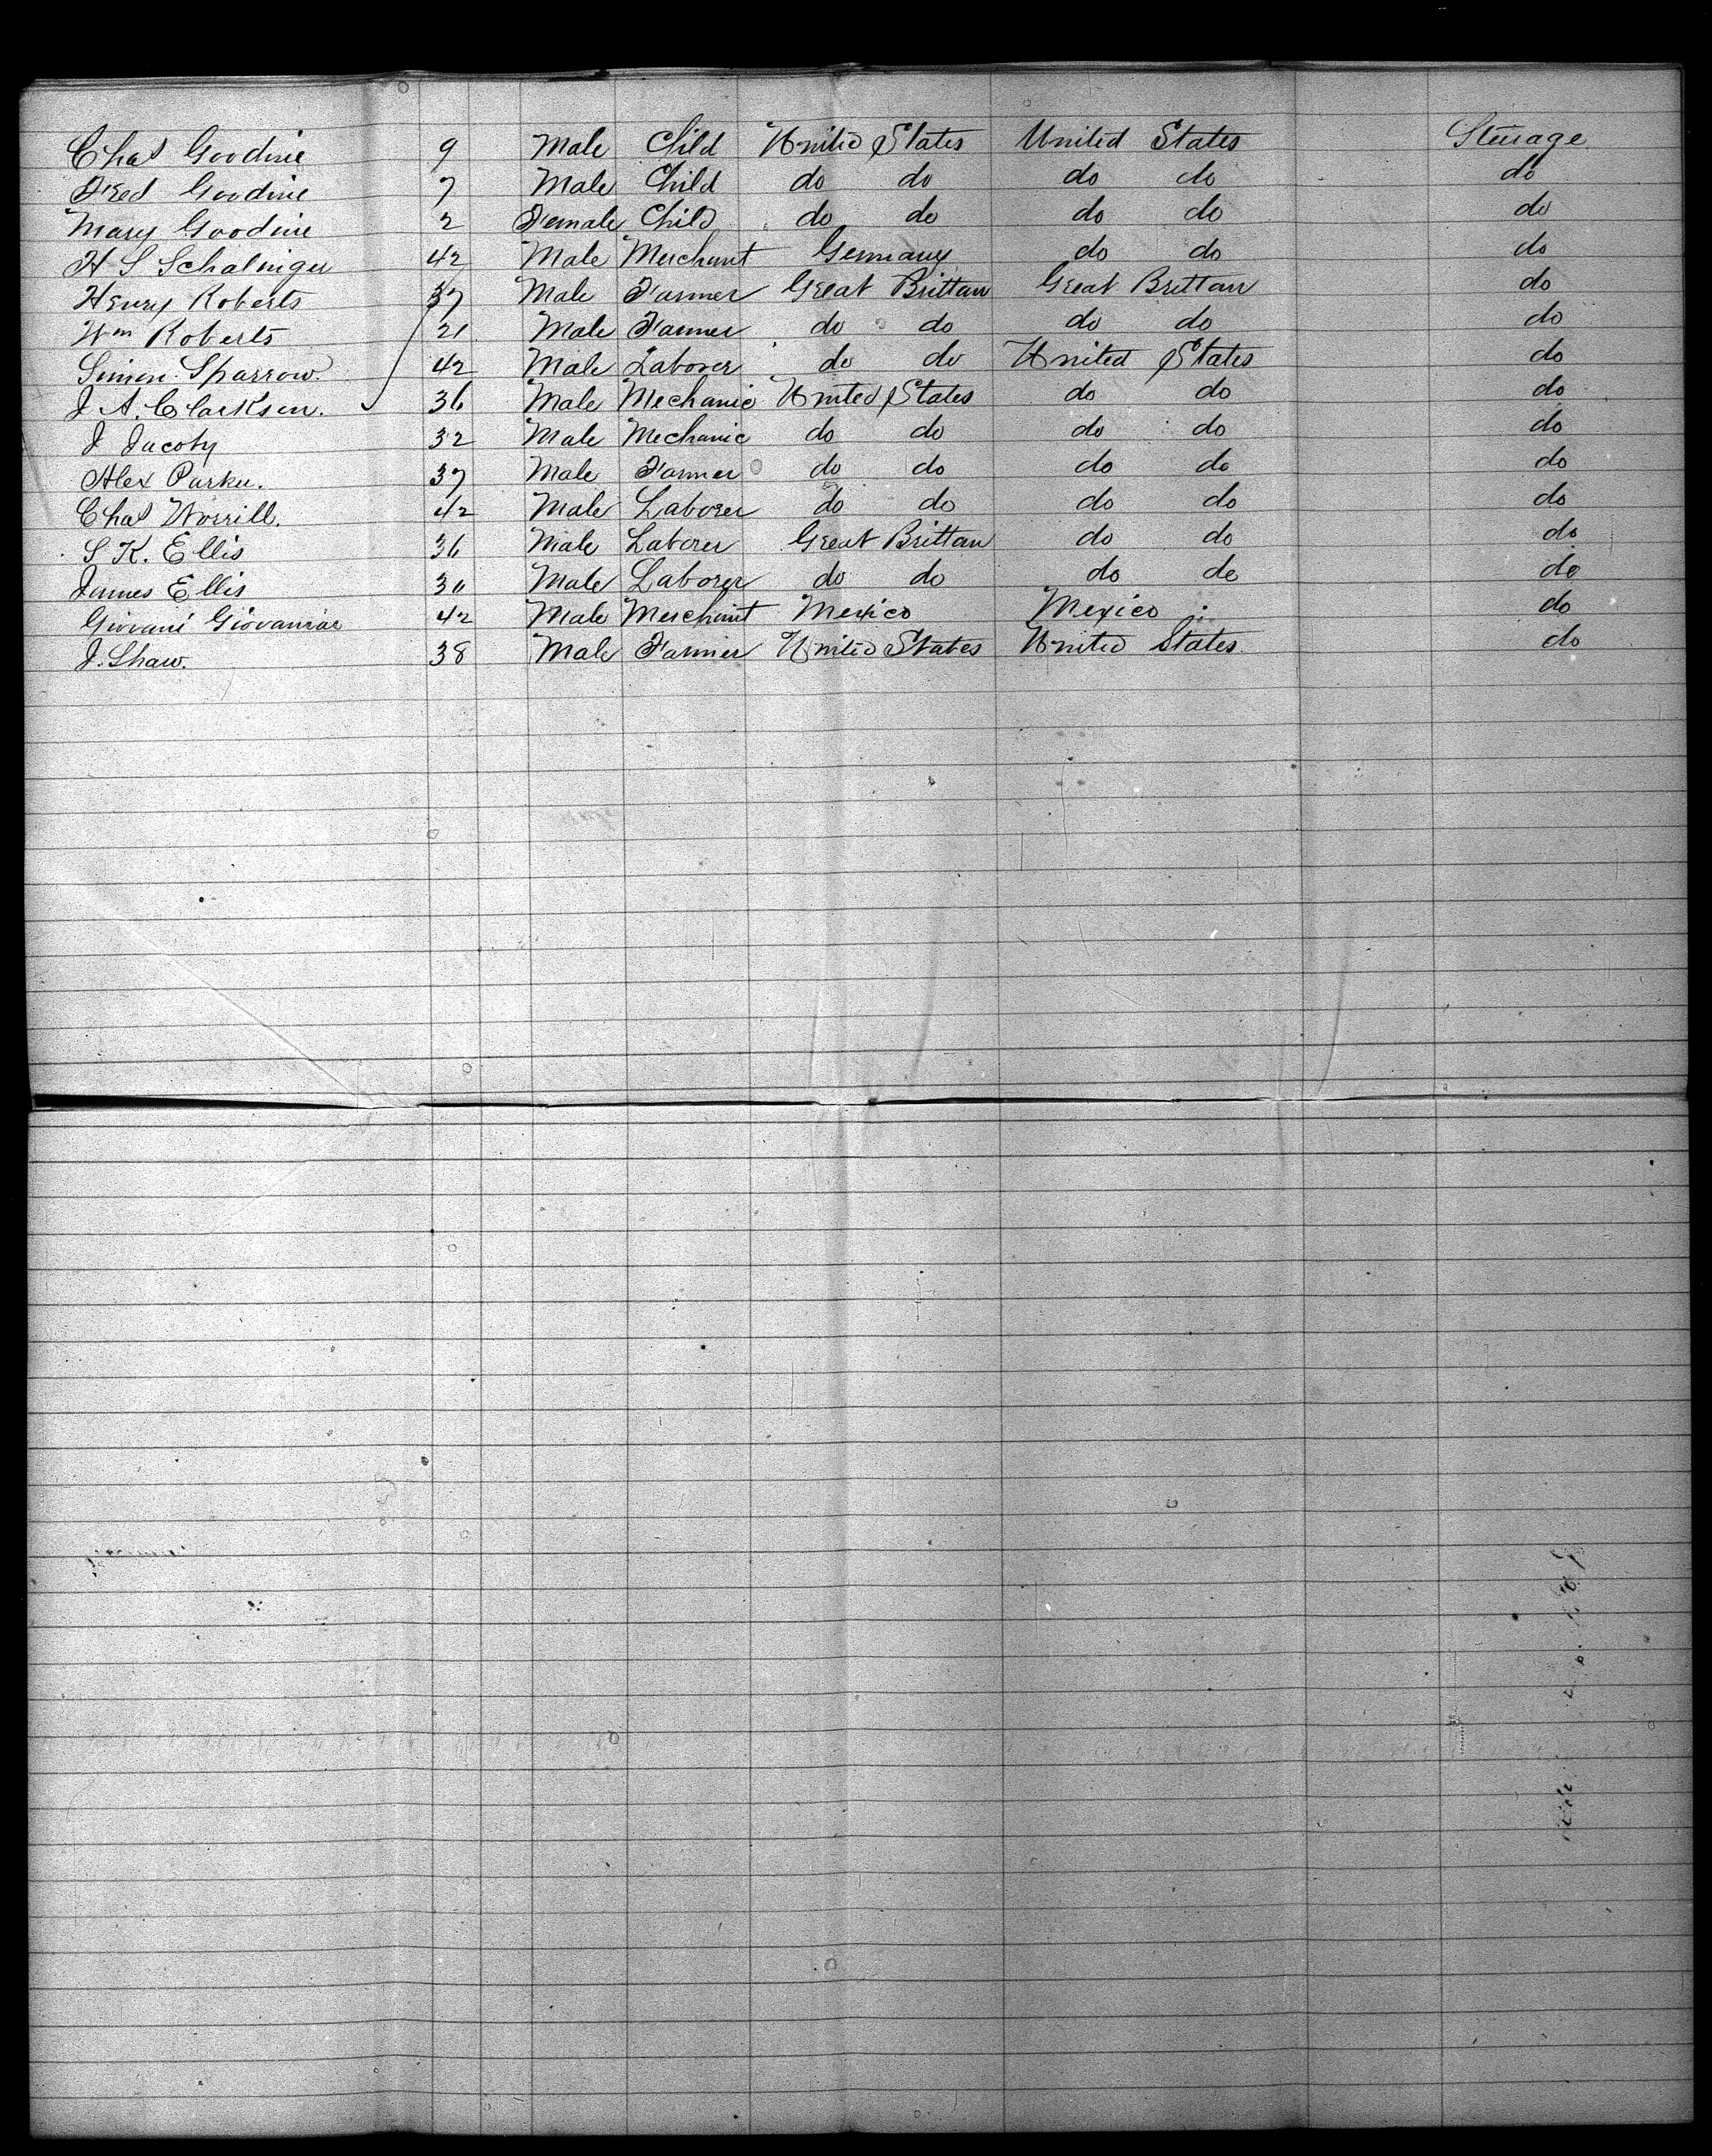 Chas Goodine 9 Male Child United States United States Steerage
Fred Goodine 7 Male Child do do do do do
Mary Goodine 2 Female Child do do do do do
H S Schalinger 42 Male Merchant Germany do do do
Henry Roberts 37 Male Farmer Great Brittan Great Brittan do
Wm Roberts 21 Male Farmer do do do do do
Simon Sparrow. 42 Male Laborer do do United States do
J A. Clarksen. 36 Male Mechanic United States do do do
J Jacoby 32 Male Mechanic do do do do do
Alex Parker. 37 Male Farmer do do do do do
Chas Worrill. 42 Male Laborer do do do do do
S K. Ellis 36 Male Laborer Great Brittan do do do
James Ellis 30 Male Laborer do do do do do
Giovani 42 Male Merchant Mexico Mexico do
J. Shaw. 38 Male Farmer United States United States. do